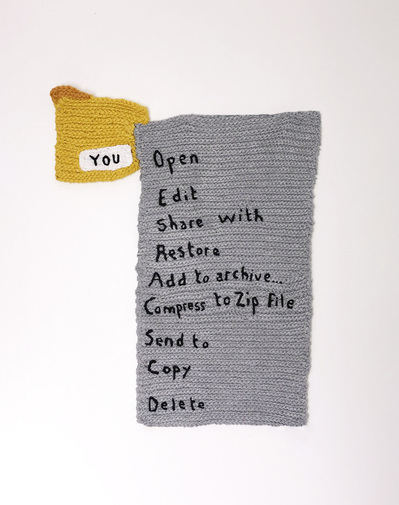 YOU
Open
Edit
Share with
Restore
Add to archive...
Compress to Zip File
Send to
Copy
Delete